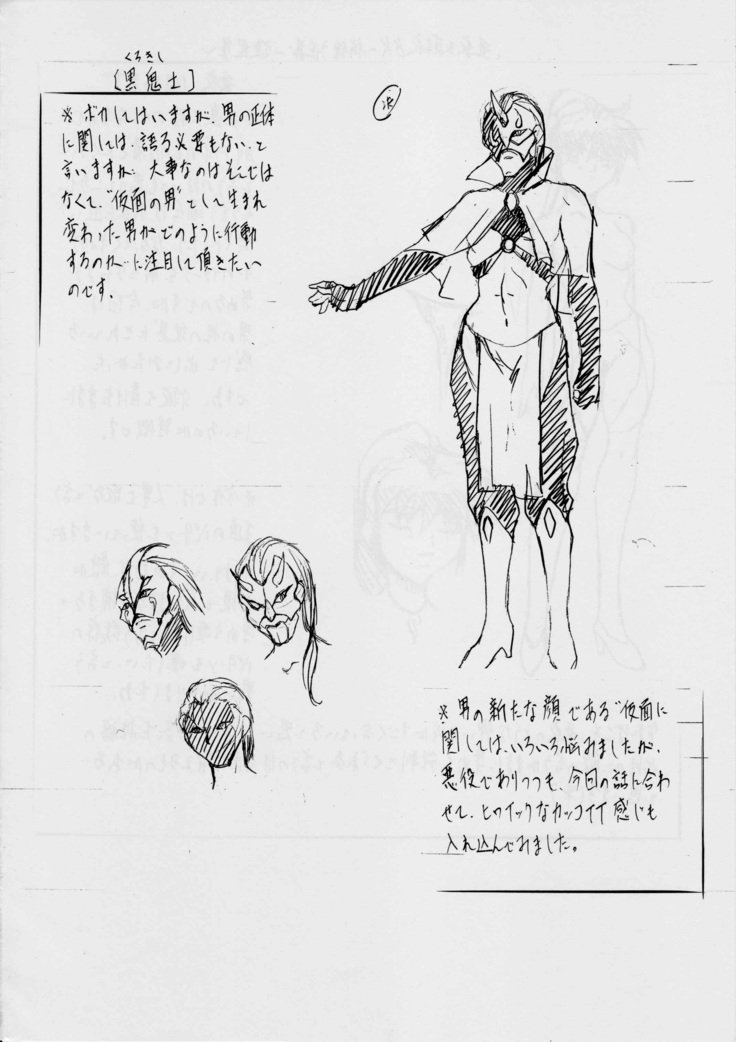 くろきし
〔黒鬼士〕
※ ボカしてはいますが、男の正体
に関しては、語る必要もない、と
言いますか、大事なのはそこでは
なくて、"仮面の男"として生まれ
変わった男がどのように行動
するのか…に注目して頂きたい
のです。
決
※ 男の新たな顔である"仮面に
関しては、いろいろ悩みましたが、
悪役でありつつも、今回の話に合わ
せて、ヒロイックなカッコイイ感じも
入れ込んでみました。